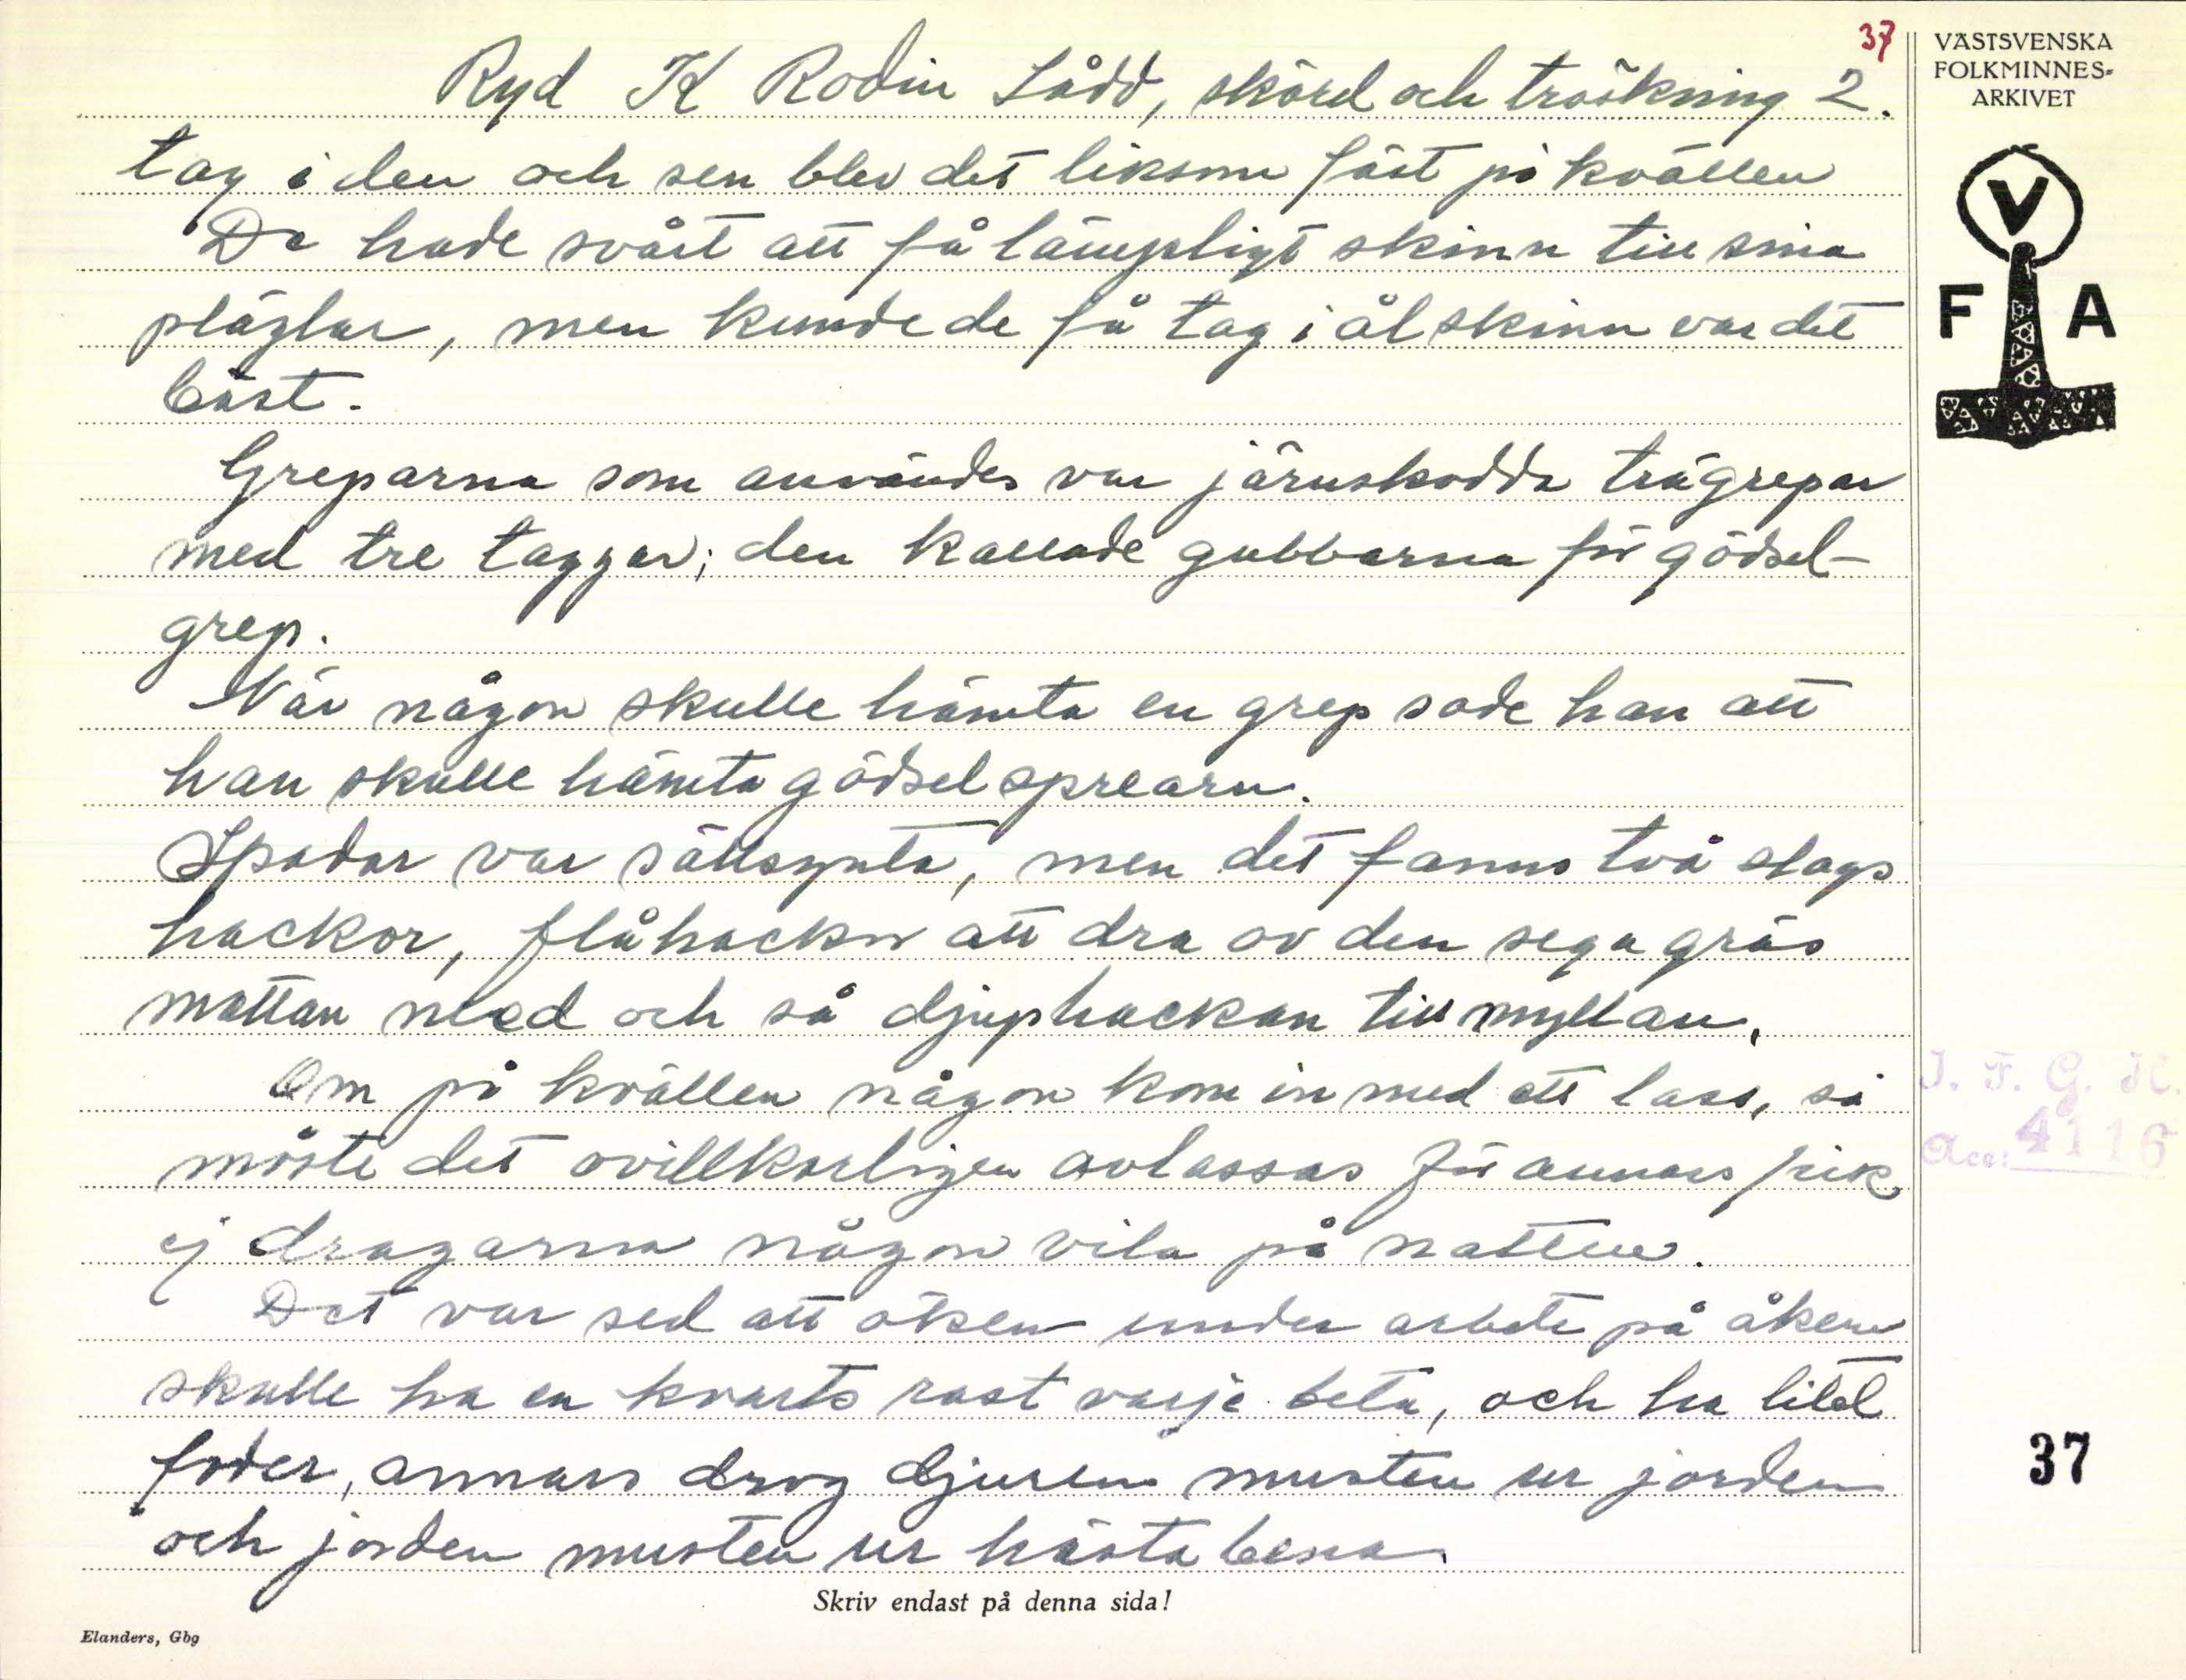 37
Ryd K Rodin Sådd, skörd och tröskning 2.
tag i den och sen blev det liksom fäst på kvällen
De hade svårt att få lämpligt skinn till sina
pläglar, men kunde de få tag i ålskinn var det
bäst.
Greparna som användes var järnskodda trägrepar
med tre taggar; den kallade gubbarna för gödsel-
grep.
När någon skulle hämta en grep sade han att
han skulle hämta gödselsprearn.
Spadar var sällsynta, men det fanns två slags
hackor, flåhackor att dra av den sega gräs
mattan med och så djuphackan till myllan.
Om på kvällen någon kom in med ett lass, så
måste det ovillkorligen avlassas för annars fick
ej dragarna någon vila på natten.
Det var sed att öken under arbete på åkern
skulle ha en kvarts rast varje beta, och ha litet
foder, annars drog djuren musten ur jorden
och jorden musten ur hästabena
Skriv endast på denna sida!
Elanders, Gbg
VÄSTSVENSKA
FOLKMINNES-
ARKIVET
V
F A
I. F. G. H.
Acc: 4116
37